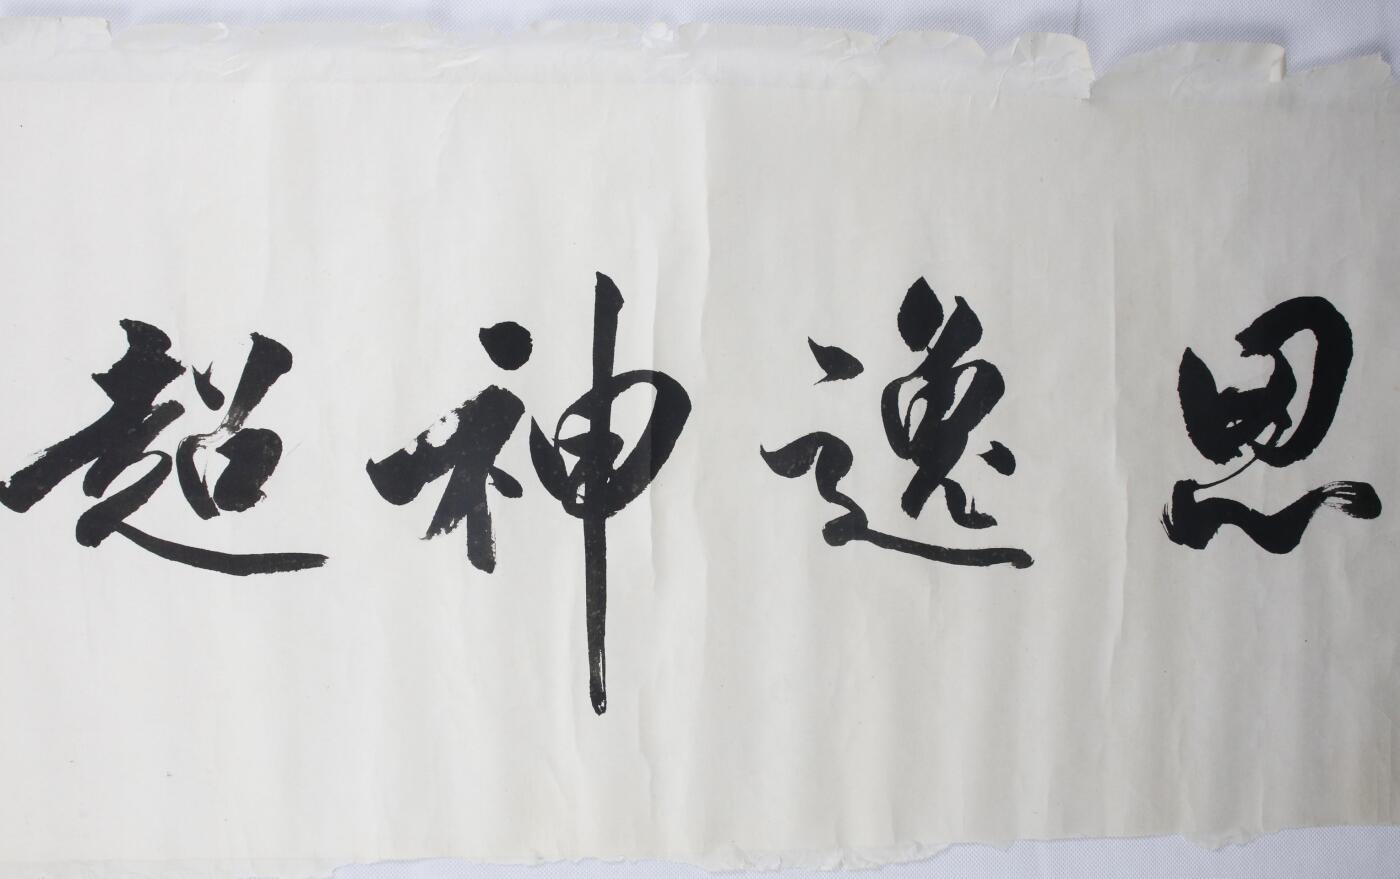 思逸神超